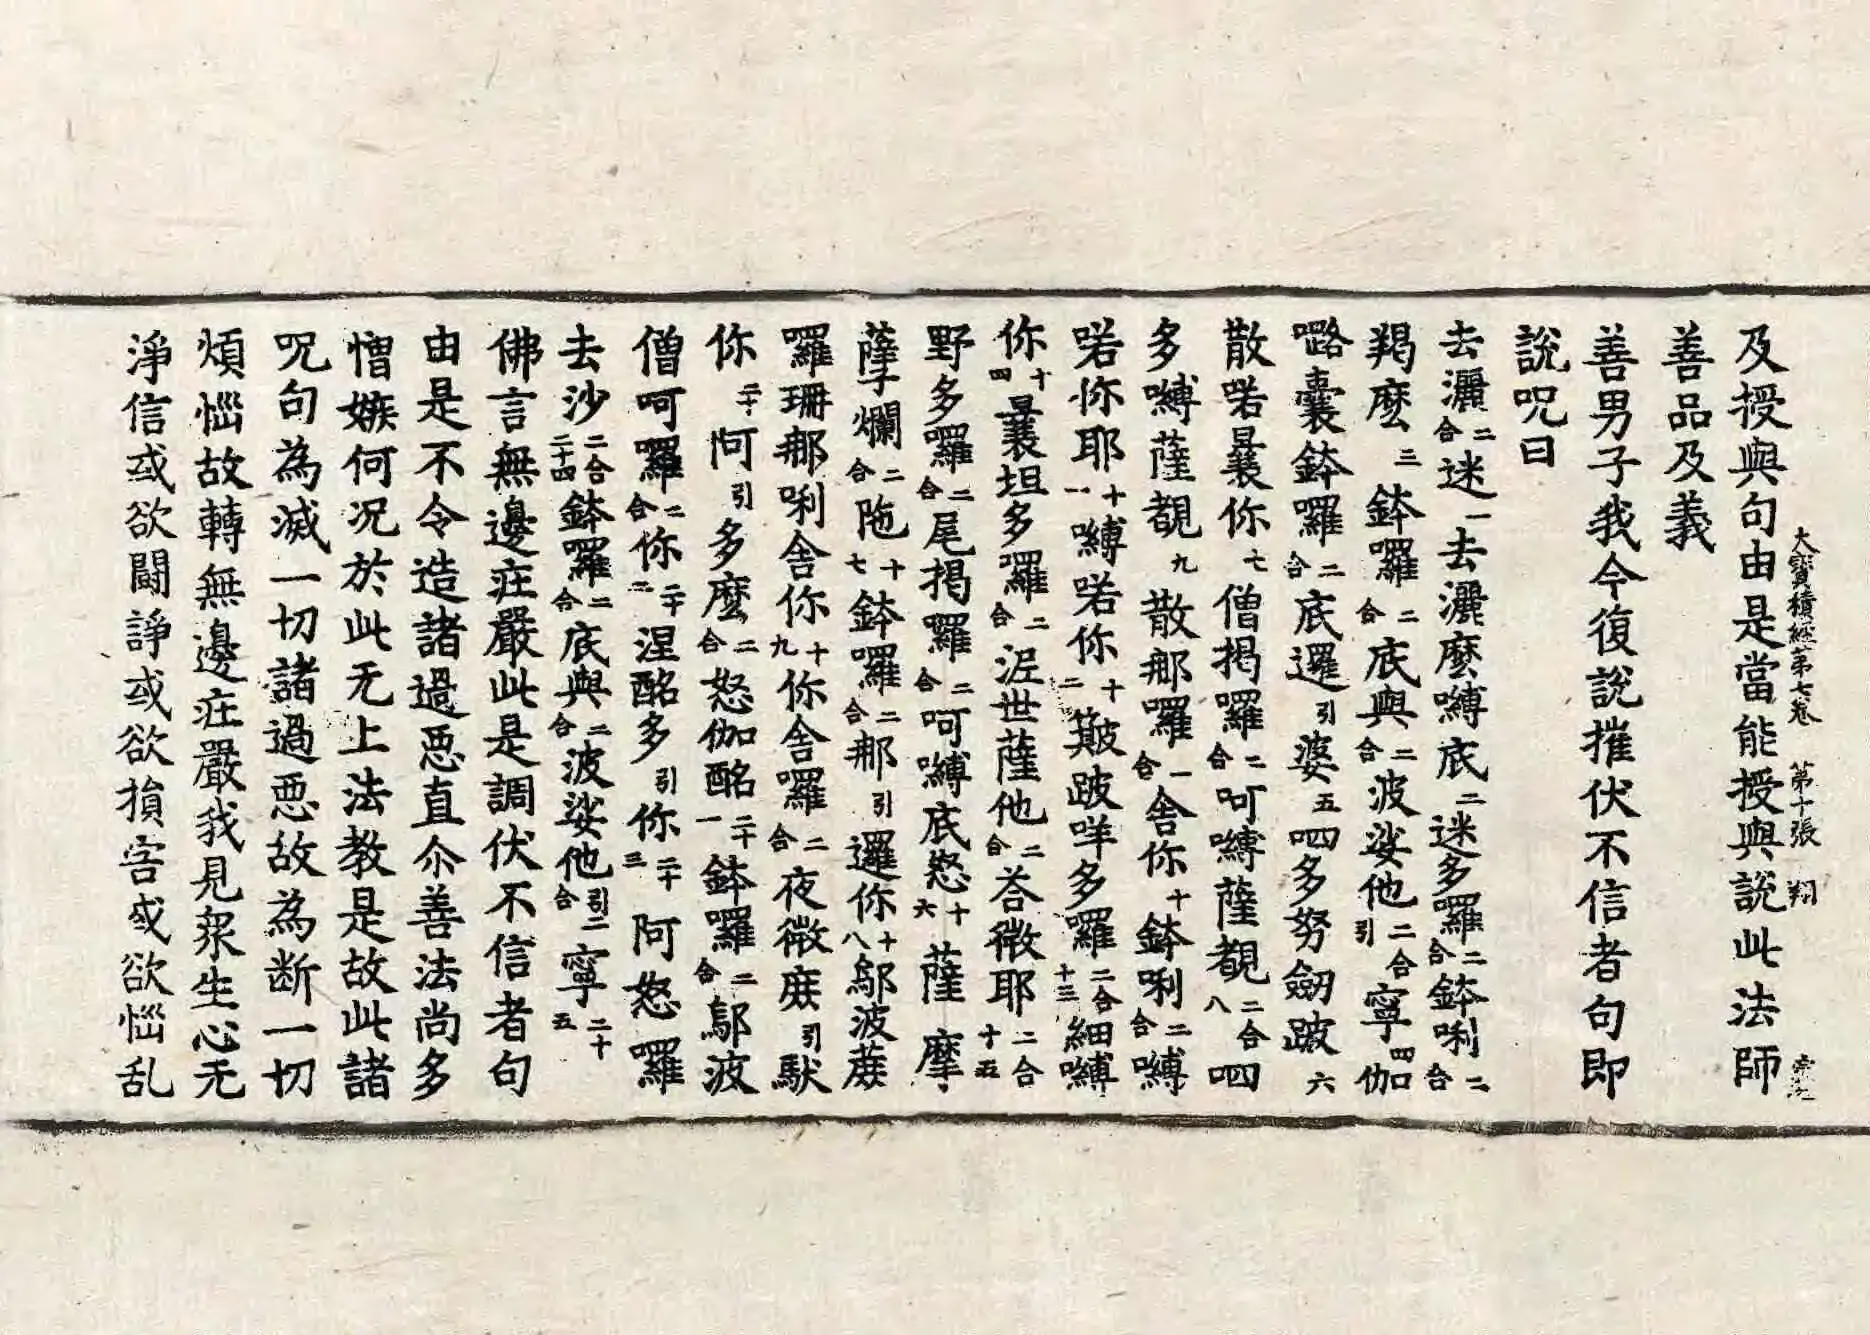 大寶積經第七卷　第十張　翔
及授與句由是當能授與說此法師
善品及義
善男子我今復說摧伏不信者句即
說呪曰
去灑二合迷一去灑麼嚩底二迷多羅二合鉢唎二合
羯麼三鉢囉二合底與二合波娑他二合引寧四伽
嚕囊鉢囉二合底邏引婆五呬多努劒跛六
散喏曩你七僧揭囉二合呵嚩薩覩二合八呬
多嚩薩覩九散那囉一合舍你十鉢唎二合嚩
喏你耶十一嚩喏你十二簸跛咩多囉二合十三細嚩
你十四曩坦多囉二合泥世薩他二合荅微耶二合十五
野多囉二合尾揭囉二合呵嚩底怒十六薩摩
薩爛二合陁十七鉢囉二合那引邏你十八鄔波蔗
囉珊那唎舍你十九你舍囉二合夜微蔗引馱
你二十阿引多麼二合怒伽酩二十一鉢囉二合鄔波
僧呵囉二合你二十二涅酩多引你二十三阿怒羅
去沙二合二十四鉢囉二合底與二合波娑他引二合寧二十五
佛言無邊莊嚴此是調伏不信者句
由是不令造諸過惡直尒善法尚多
憎嫉何況於此无上法教是故此諸
呪句為滅一切諸過惡故為断一切
煩惱故轉無邊莊嚴我見衆生心无
淨信或欲鬪諍或欲損害或欲惱乱